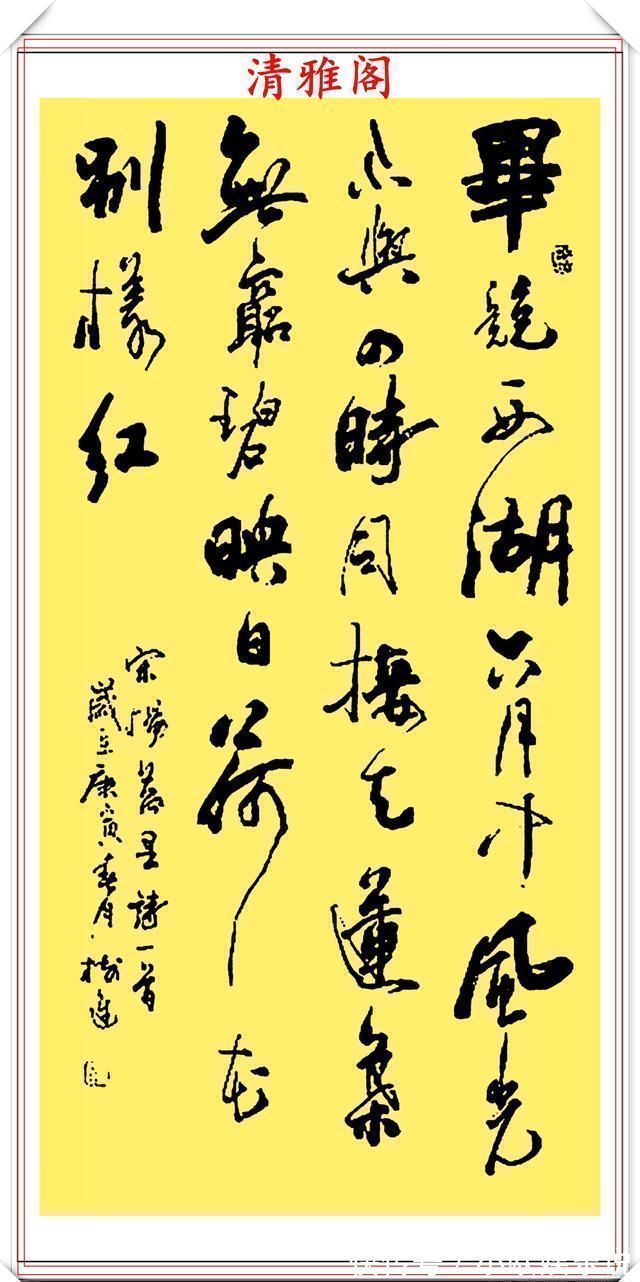 清雅阁
畢竟西湖六月中風光
不與四時同接天蓮葉
無窮碧映日荷花
別樣紅
宋楊萬里詩一首
歲在庚寅春月